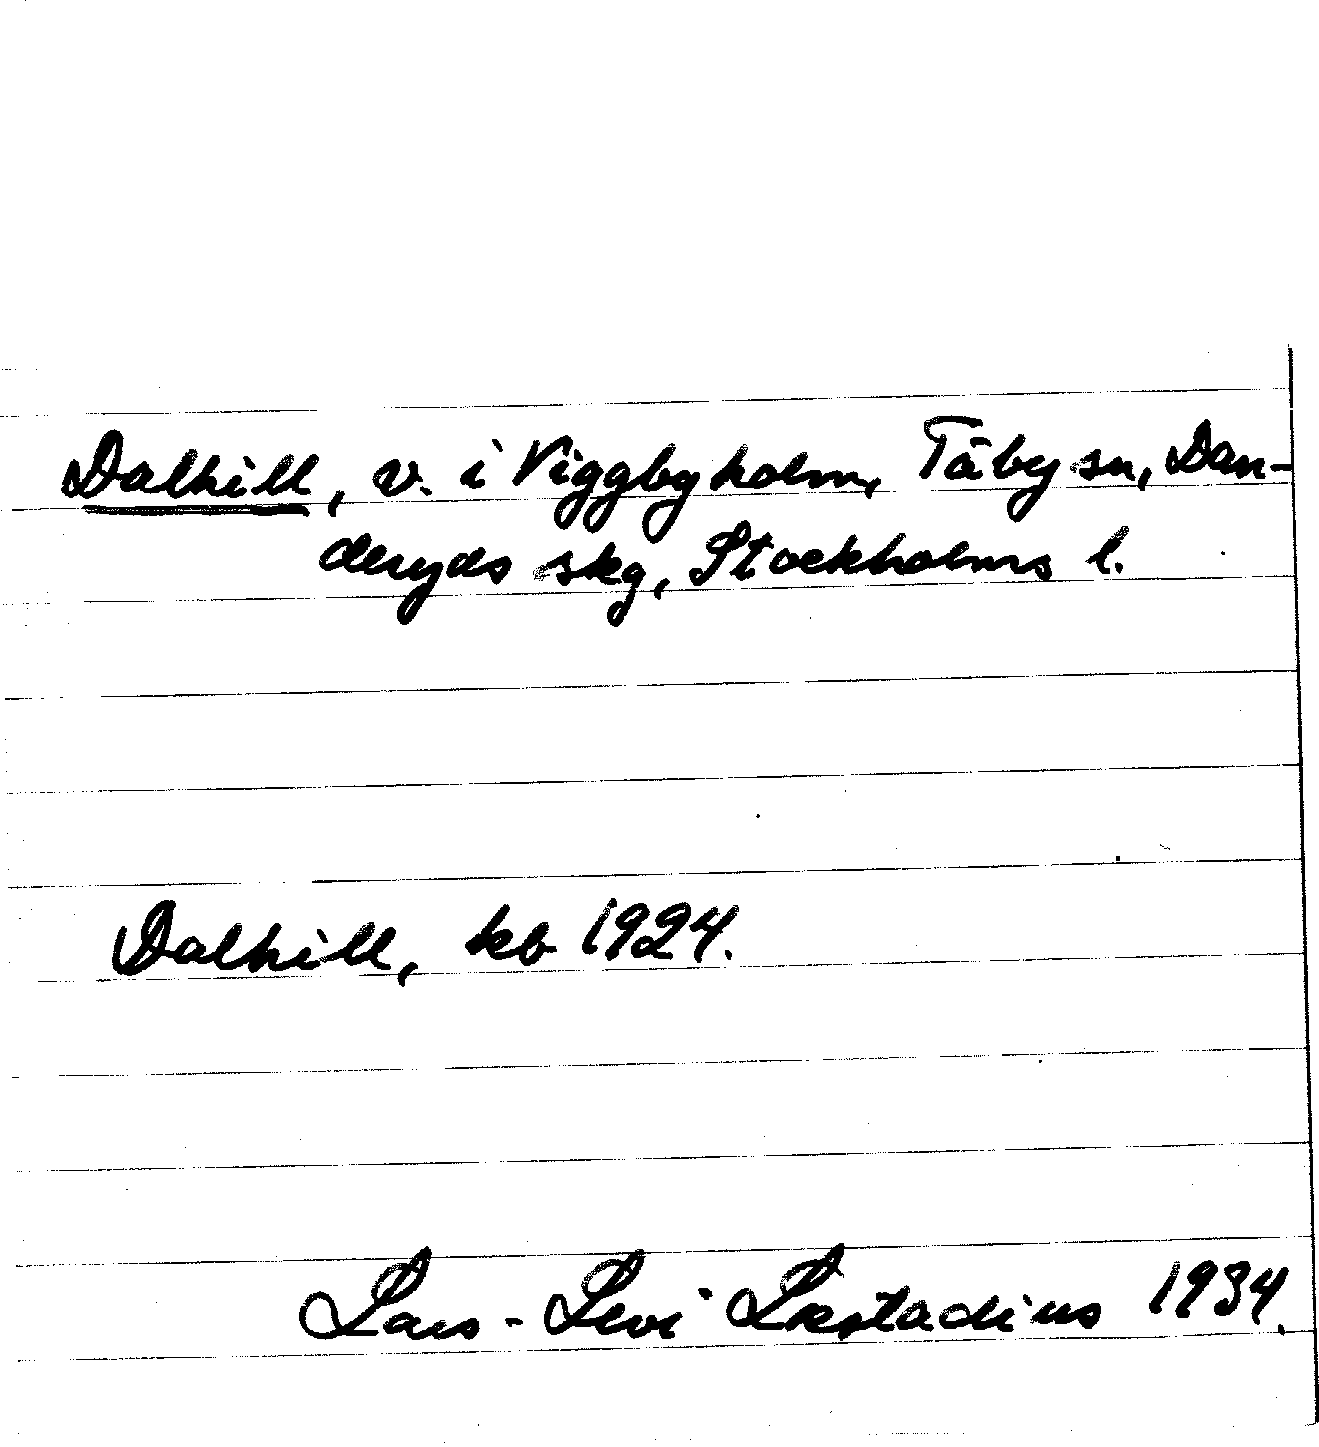 Dalhill, v. i Viggbyholm, Täby sn, Dan-
deryds skg, Stockholms l.
Dalhill, kb 1924.
Lars-Levi Læstadius 1934.